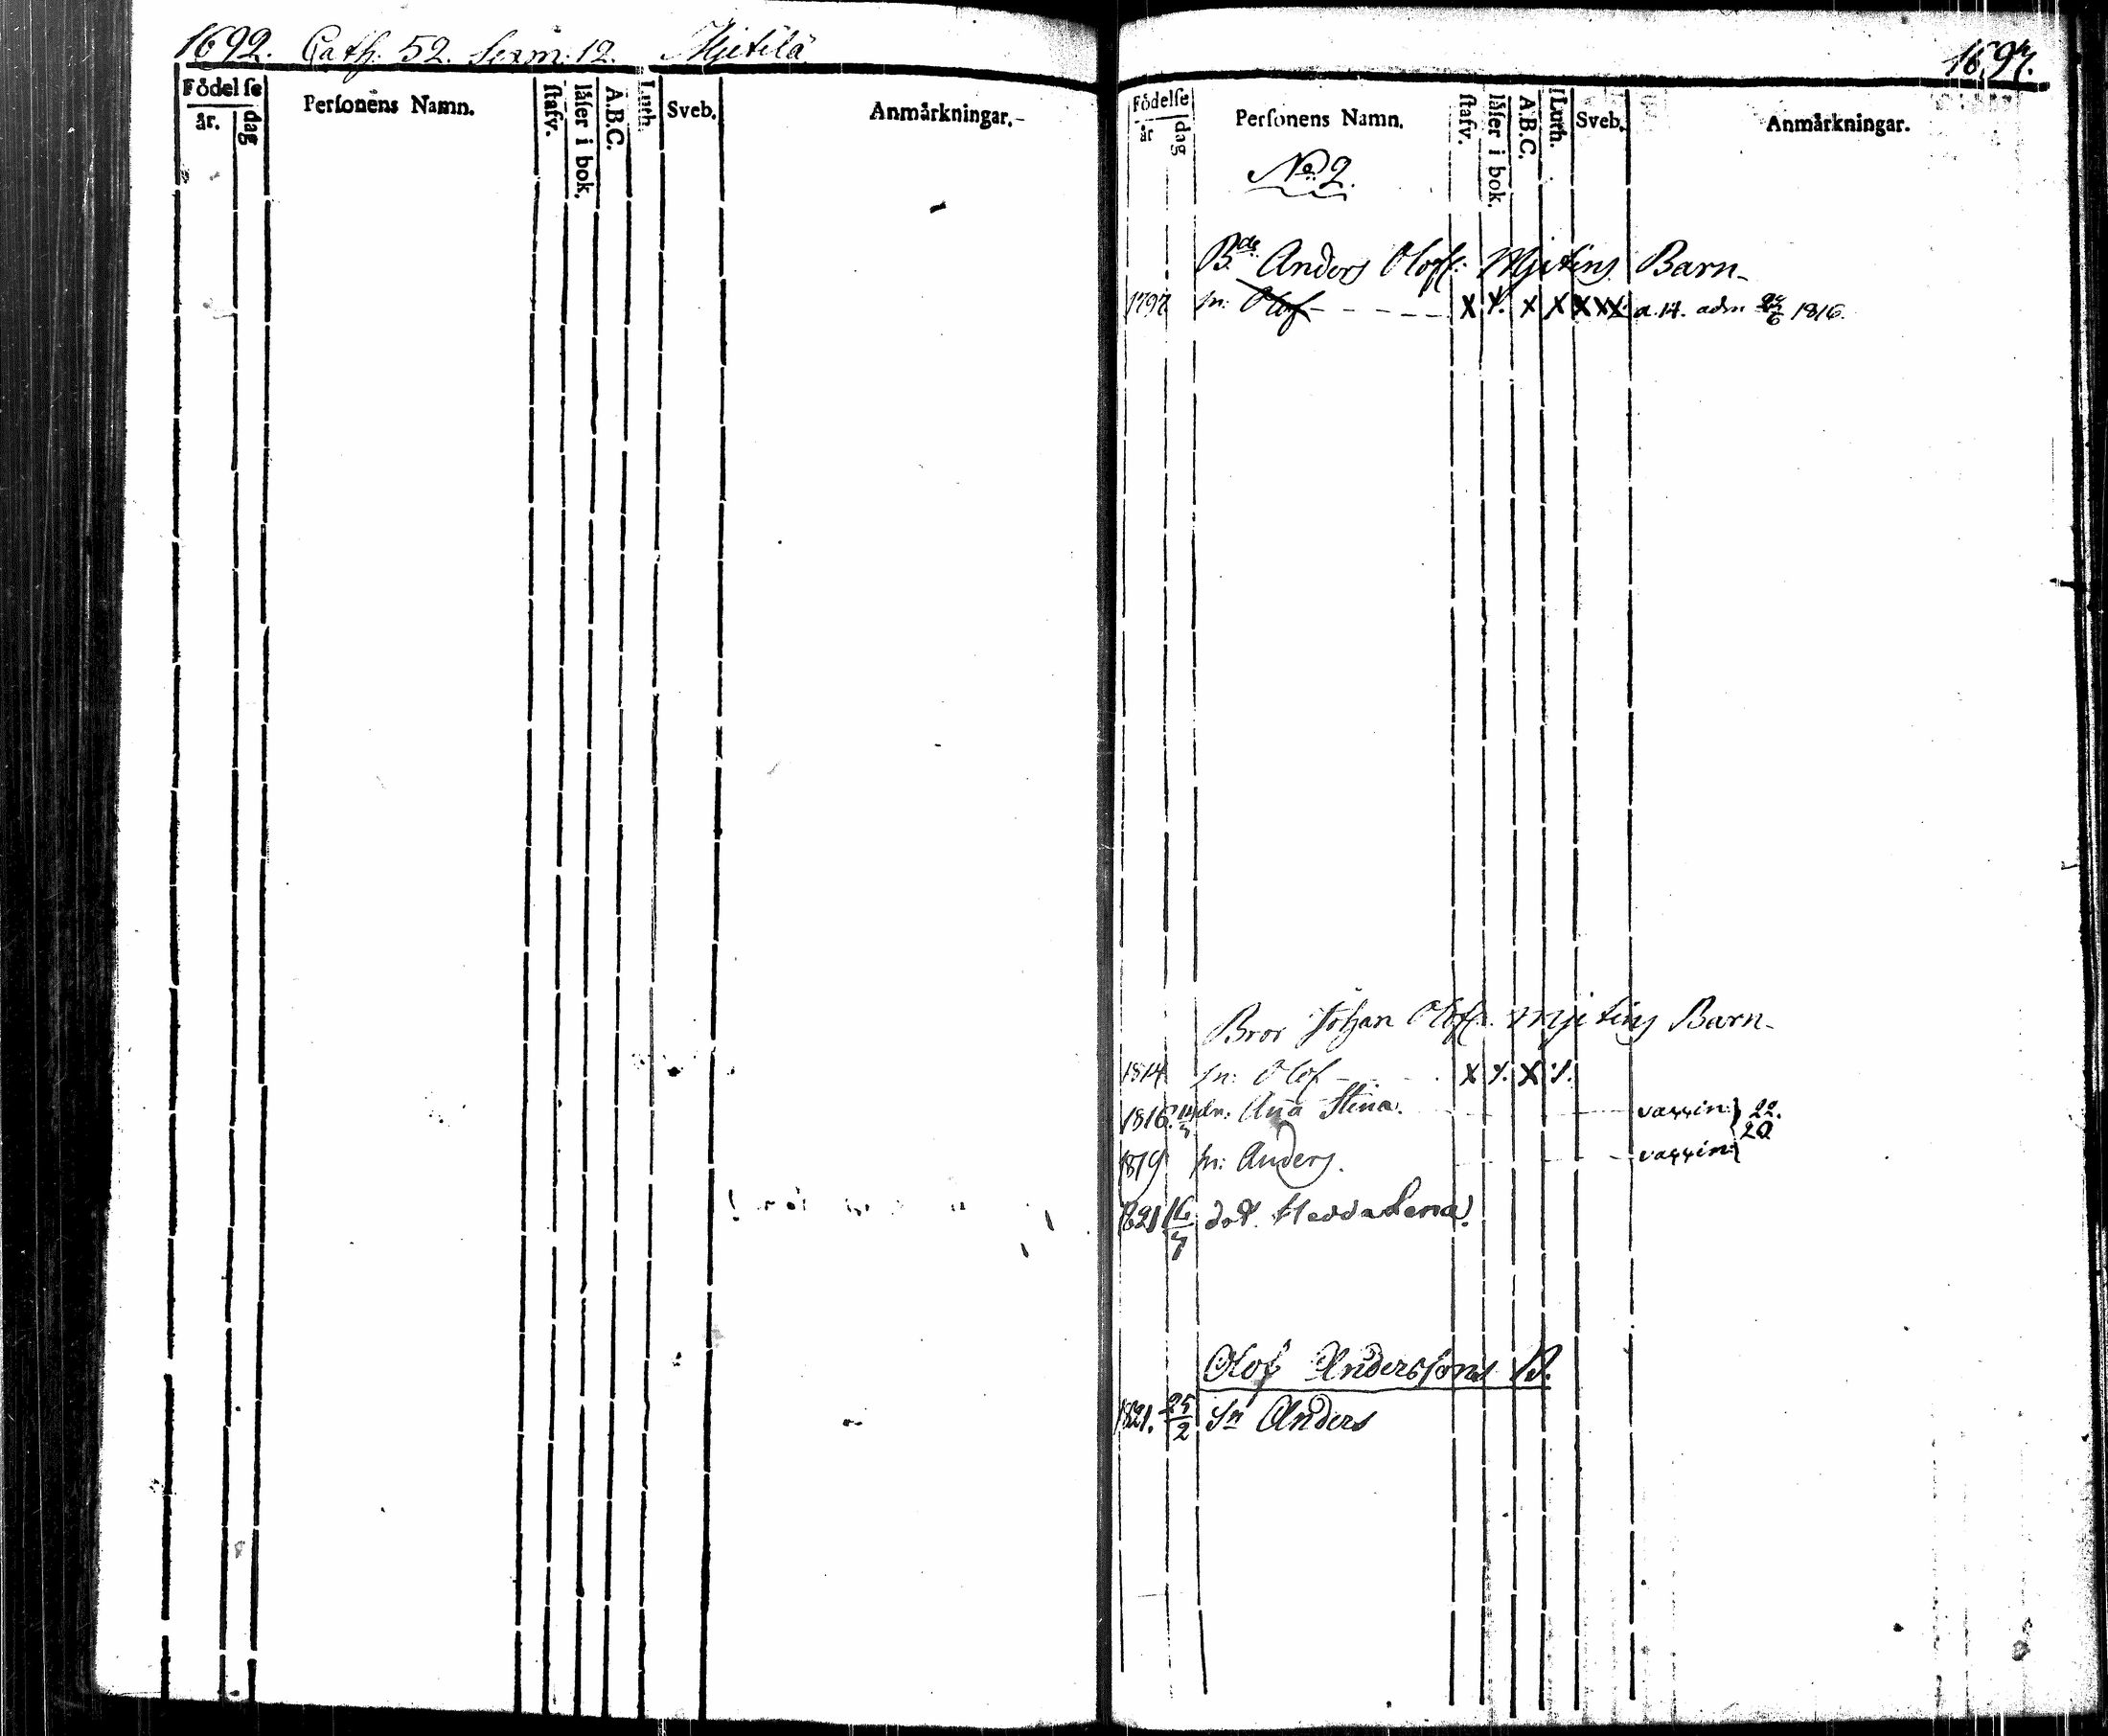 1692. Cath. 52. Serm. 12. Mjetilä
Födelse
år. dag
Personens Namn.
stafv.
läser i bok.
A.B.C.
Luth.
Sveb.
Anmärkningar.
1697.
Födelse
år dag
Personens Namn.
stafv.
läser i bok.
A.B.C.
Luth.
Sveb.
Anmärkningar.
No 2.
Bde Anders Olofs: Mjetins Barn
1797 sn: Olof x x. x x x x x a.H. adm 1816.
Bror Johan Olofs: Mjetins Barn
1814 sn: Olof x x. x x.
1816 dn: Aña Stina. vaccin: 22.
20
1819 sn: Anders. vaccin:
1821 16/7 dot. Hedda Lena.
Olof Anderssons B.
1821. 25/2 Sn Anders